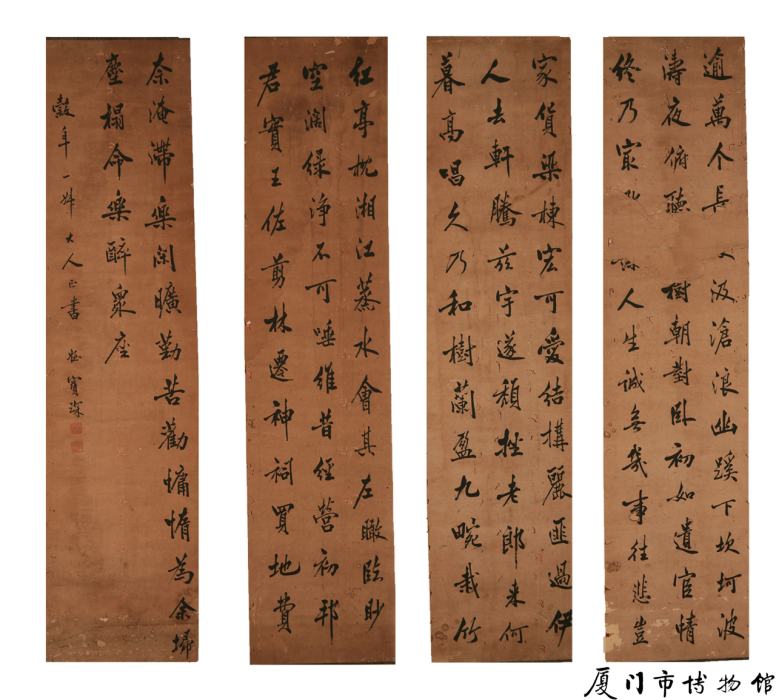 紅亭枕湘江蒸水會其左瞰臨眇
空濶綠淨不可唾維昔經營初邦
君實王佐剪林遷神祠買地費
家貨梁棟宏可愛結構麗匪過伊
人去軒騰茲宇遂頹挫老郎來何
暮高唱久乃和樹蘭盈九畹栽竹
逾萬个長 汲滄浪幽蹊下坎坷波
濤夜俯聽 樹朝對臥初如遺宦情
終乃最 人生誠無幾事往悲豈
奈淹滯樂閑曠勤苦勸慵惰為余掃
塵榻命樂醉眾座
穀年一姊大人正書 寶琛
厦门市博物馆